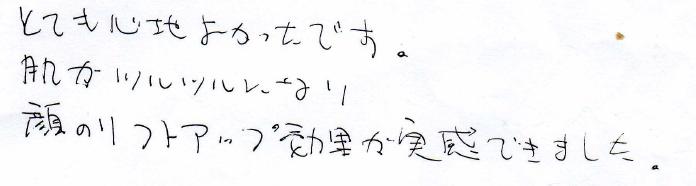 とても心地よかったです。
肌がツルツルになり
顔のリフトアップ効果が実感できました。